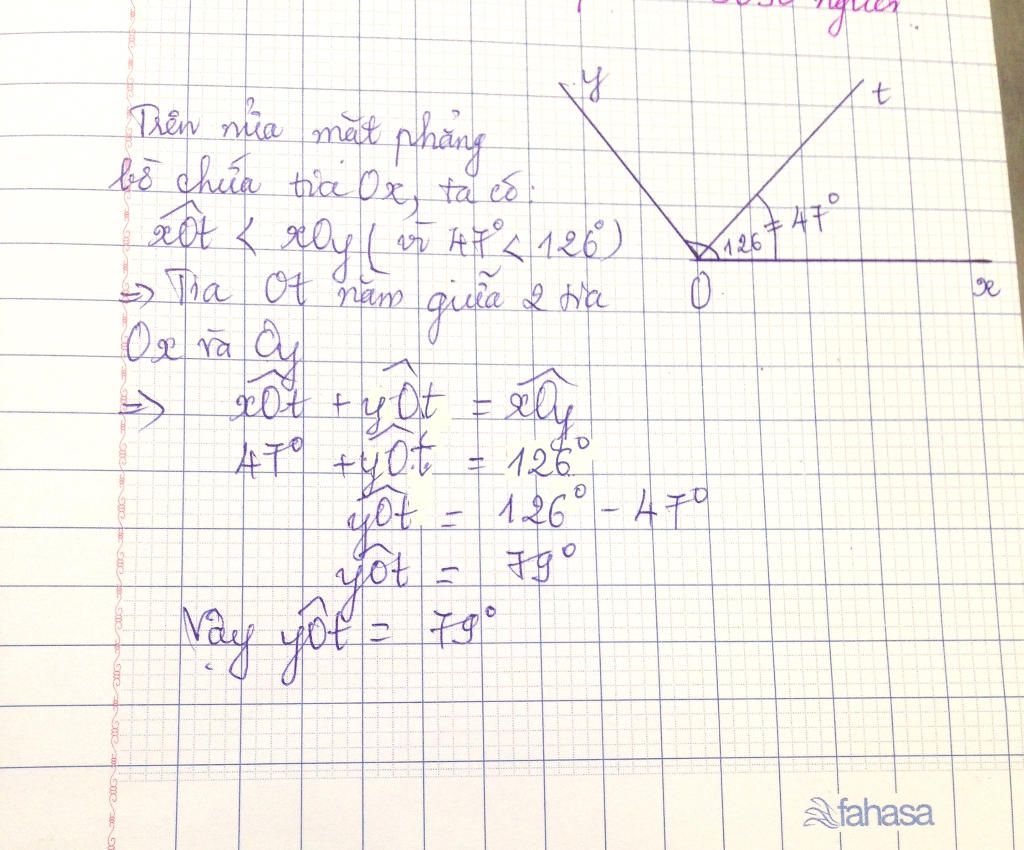 nguyên
y
t
Trên nửa mặt phẳng
bờ chứa tia Ox, ta có:
xOt < xOy ( vì 47° < 126° )
126° = 47°
O
x
=> Tia Ot nằm giữa 2 tia
Ox và Oy
=> xOt + yOt = xOy
47° + yOt = 126°
yOt = 126° - 47°
yOt = 79°
Vậy yOt = 79°
fahasa